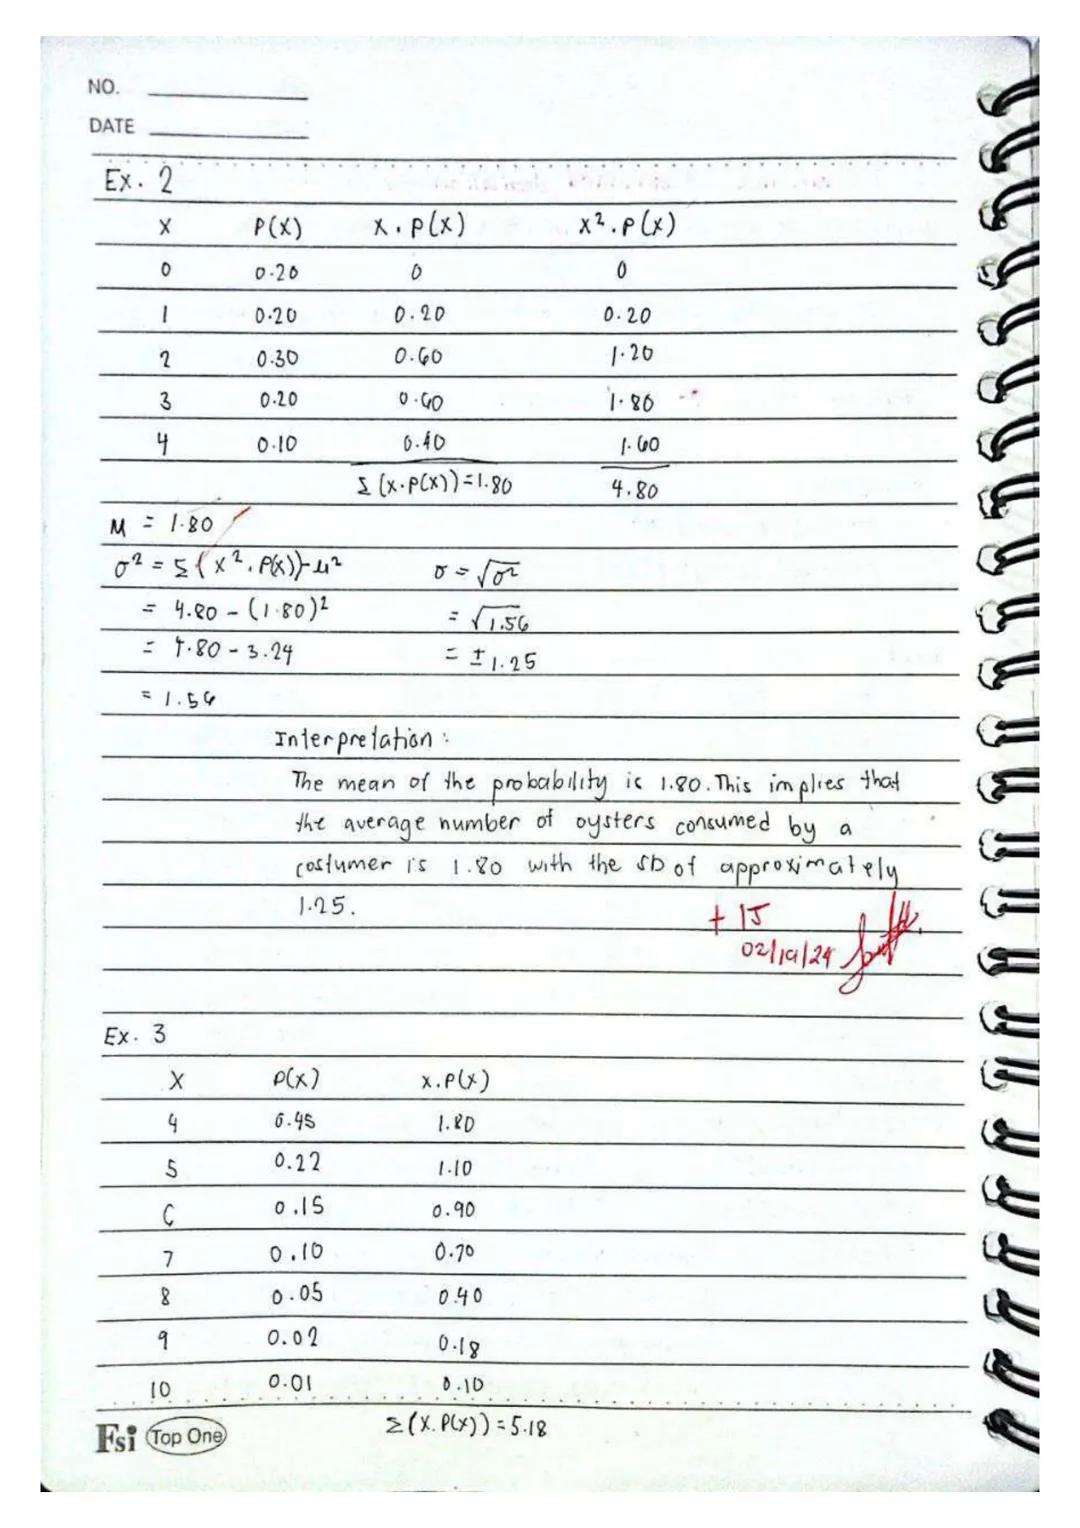 NO.
DATE
Ex. 2
X P(X) X . P(X) X² . P(X)
0 0.20 0 0
1 0.20 0.20 0.20
2 0.30 0.60 1.20
3 0.20 0.60 1.80
4 0.10 0.40 1.60
Σ (X·P(X)) = 1.80 4.80
M = 1.80
σ² = Σ (X² . P(X)) - μ² σ = √σ²
= 4.80 - (1.80)² = √1.56
= 4.80 - 3.24 = ± 1.25
= 1.56
Interpretation :
The mean of the probability is 1.80. This implies that
the average number of oysters consumed by a
costumer is 1.80 with the SD of approximately
1.25.
+ 15
02/19/24
Ex. 3
X P(X) X . P(X)
4 0.45 1.80
5 0.22 1.10
6 0.15 0.90
7 0.10 0.70
8 0.05 0.40
9 0.02 0.18
10 0.01 0.10
Σ (X. P(X)) = 5.18
Fsi Top One